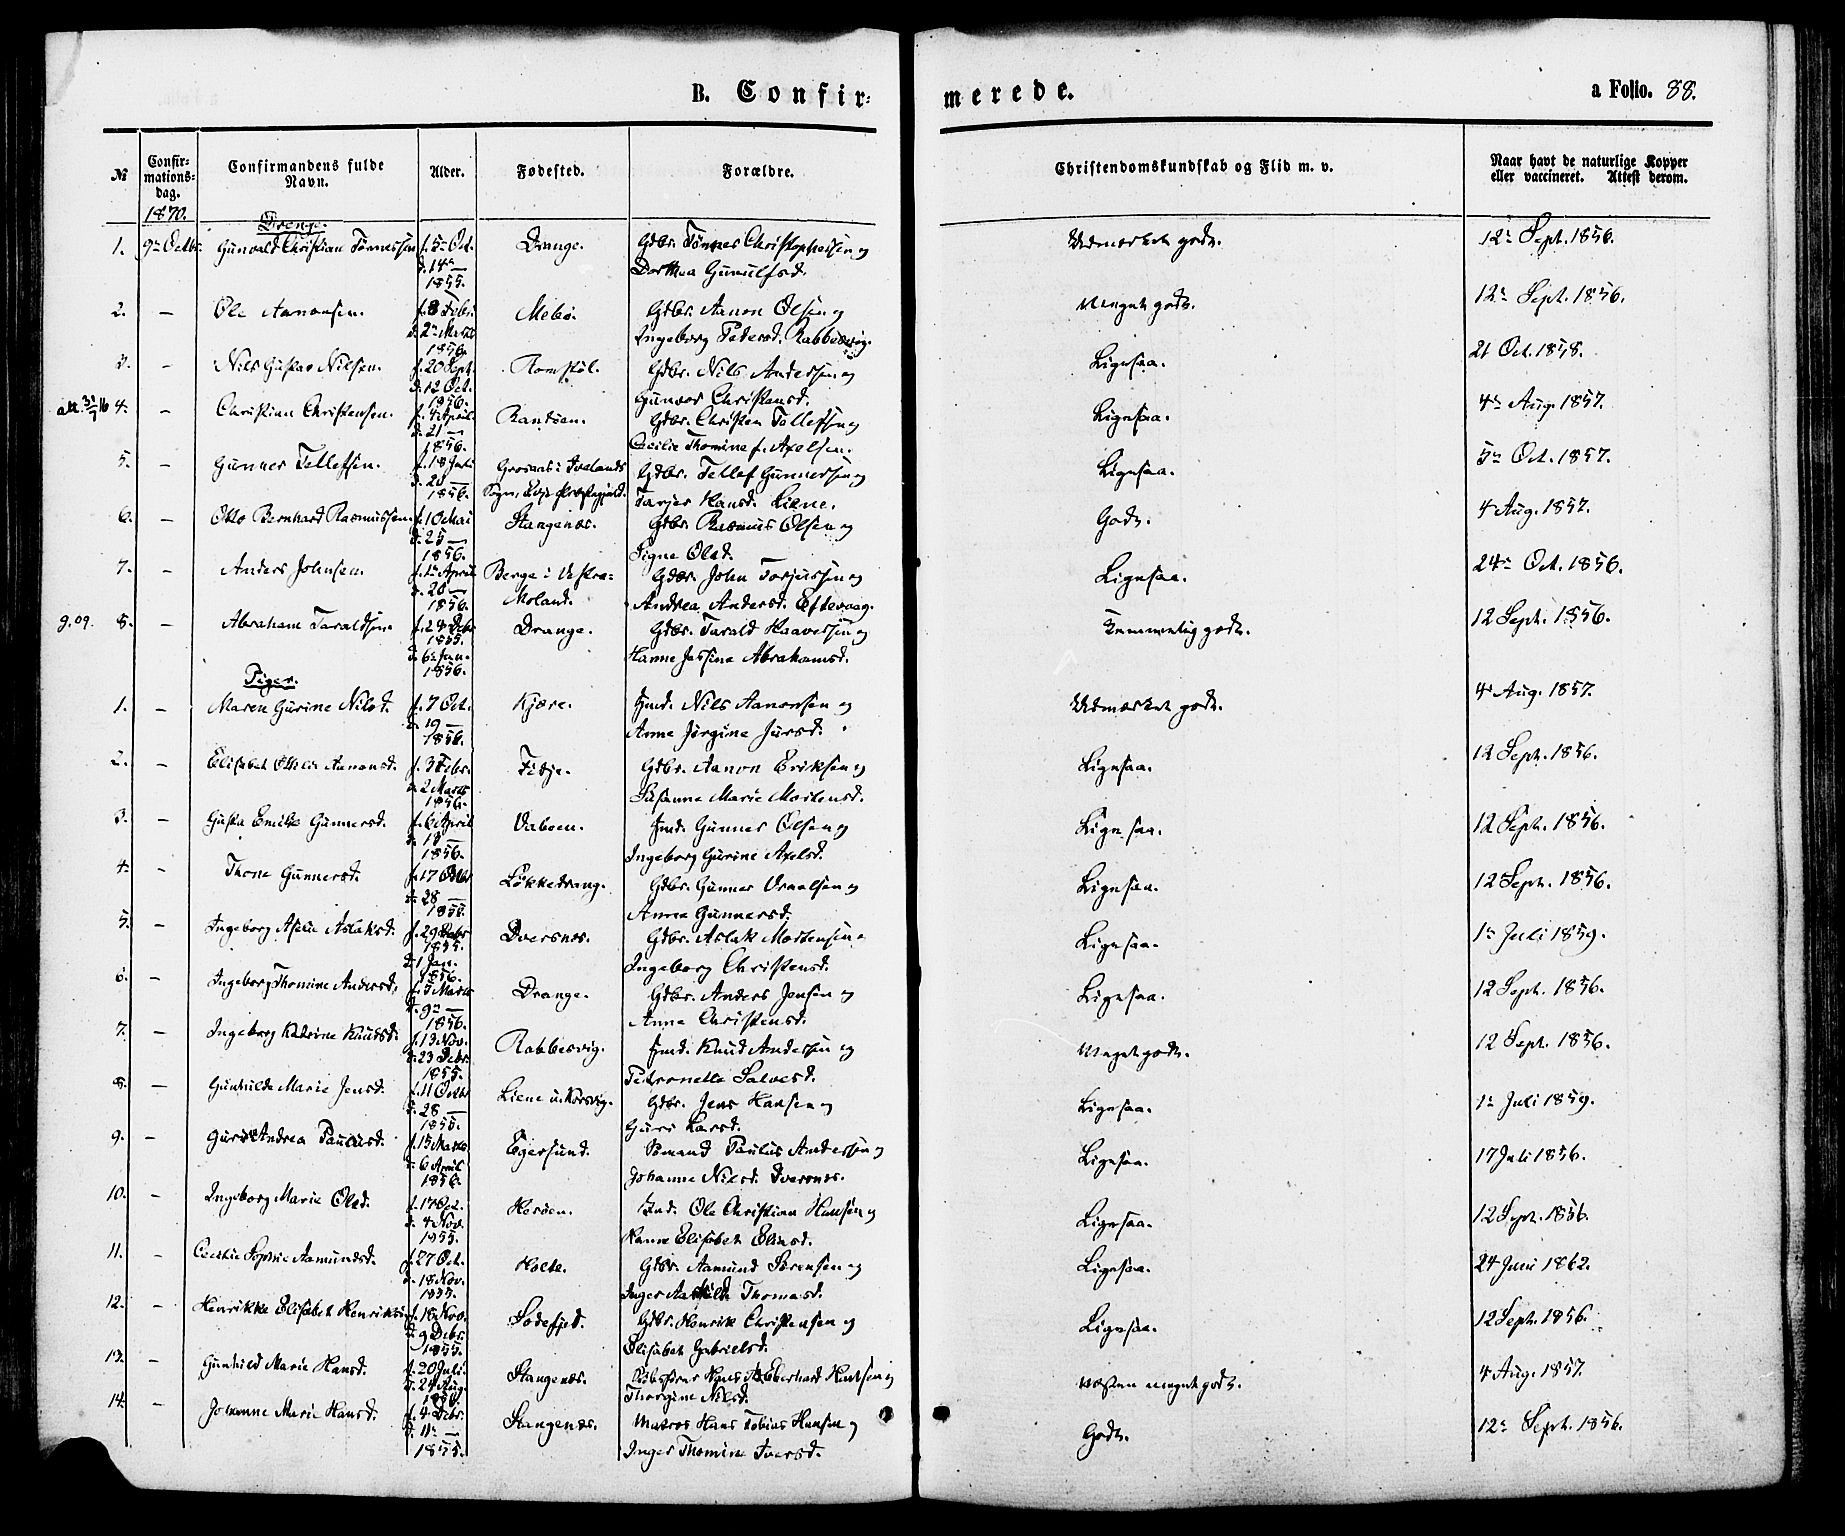 B. Confir-
merede.
a Folio. 88.
№
Confir-
mations-
dag.
Confirmandens fulde
Navn.
Alder.
Fødested.
Forældre.
Christendomskundskab og Flid m. v.
Naar havt de naturlige Kopper
eller vaccineret. Attest derom.
1870.
Drenge.
1. 9de Octbr. Gunvald Christian Tønnessen f. 5te Oct. Drange. Gdbr. Tønnes Christophersen og Udmærket godt. 12te Sept. 1856.
d. 14de — Dorthea Gunulfsd.
1855.
2. — Ole Aanonsen. f. 8 Febr. Mebø. Gdbr. Aanon Olsen og Meget godt. 12te Sept. 1856.
d. 2den Marts Ingeborg Pedersd. Rabbesvig.
1856.
3. — Nils Gustav Nilsen. f. 20 Sept. Romstøl. Gdbr. Nils Andersen og Ligesaa. 21 Oct. 1858.
d. 12 Oct. Gunvor Christensd.
1856.
att. 31/7 16 4. — Christian Christensen. f. 4 April Randøen. Gdbr. Christen Tellefsen og Ligesaa. 4de Aug. 1857.
d. 21 — Cecilie Thomine f. Axelsen.
1856.
5. — Gunner Tellefsen. f. 18 Juli Grosaas i Ivelands Gdbr. Tellef Gunnersen og Ligesaa. 5te Oct. 1857.
d. 20 — Sogn, Evje Præstegjeld. Torjer Hansd. Liene.
1856.
6. — Otto Bernhard Rasmussen. f. 10 Mai Stangenæs. Gdbr. Rasmus Olsen og Godt. 4 Aug. 1857.
d. 25 — Signe Olsd.
1856.
7. — Anders Johnsen. f. 1ste April Berge i Vestre- Gdbr. John Torjussen og Ligesaa. 24de Oct. 1856.
d. 20 — Moland. Andrea Andersd. Eftevaag.
1856.
9.09. 8. — Abraham Taraldsen. f. 28 Debr Drange. Gdbr. Tarald Haaversen og Temmelig godt. 12 Sept. 1856.
1855.
d. 6te Jan. Hanne Jessine Abrahamsd.
1856.
Piger.
1. — Maren Gurine Nilsd. f. 7 Oct. Kjære. Jmd. Nils Aanonsen og Udmærket godt. 4de Aug. 1857.
d. 19 — Anne Jørgine Jursd.
1856.
2. — Elisabet Othilie Aanonsd. f. 3 Febr. Fidje. Gdbr. Aanon Eriksen og Ligesaa. 12 Sept. 1856.
d. 2 Marts Susanne Marie Mortensd.
1856.
3. — Gusta Emilie Gunnersd. f. 6 April Vaboen. Jmd. Gunner Olsen og Ligesaa. 12 Sept. 1856.
— Ingeborg Gurine Axelsd.
1856.
4. — Thone Gunnersd. f. 17 Octbr Løkkedrang. Gdbr. Gunner Vraalsen og Ligesaa. 12 Sept. 1856.
d. 28 — Anne Gunnersd.
1855.
5. — Ingeborg Aselie Aslaksd. f. 29 Debr Dversnæs. Gdbr. Aslak Mortensen Ligesaa. 1ste Juli 1859.
1855.
d. 1 Jan. Ingeborg Christensd.
1856.
6. — Ingeborg Thomine Andersd. f. 5 Marts Drange. Gdbr. Anders Jensen og Ligesaa. 12 Sept. 1856.
d. 9de — Anne Christensd.
1856.
7. — Ingeborg Katrine Knudsd. f. 13 Nov. Rabbesvig. Jmd. Knud Andersen og Meget godt. 12 Sept. 1856.
d. 23 Debr. Petronelle Salvesd.
1855.
8. — Gunhilde Marie Jensd. f. 11 Octbr Liene u. Korsvig. Gdbr. Jens Hansen og Ligesaa. 1ste Juli 1859.
d. 28 — Guri Larsd.
1855.
9. — Guri Andrea Paulusd. f. 15 Marts Egersund. Sømand Paulus Andersen og Ligesaa. 17 Juli 1856.
d. 6 April Johanne Nilsd. Dversnæs.
1856.
10. — Ingeborg Marie Olsd. f. 17 Oct. Herøen. Ind. Ole Christian Hansen og Ligesaa. 12 Sept. 1856.
d. 4 Nov. Hanne Elisabet Eliasd.
1855.
11. — Cecilie Sophie Aamundsd. f. 27 Oct. Holte. Gdbr. Aamund Sørensen og Ligesaa. 24 Juni 1862.
d. 18 Nov. Inger Aashilde Thomasd.
1855.
12. — Henrikke Elisabet Henriksd. f. 16 Nov. Sodefjed. Gdbr. Henrik Christensen og Ligesaa. 12 Sept. 1856.
d. 9 Debr. Elisabet Gabrielsd.
1855.
13. — Gunhild Marie Hansd. f. 20 Juli. Stangenæs. Hans Eberhard Knutsen og Næsten meget godt. 4 Aug. 1857.
d. 24 Aug. Thorgine Nilsd.
1856.
14. — Johanne Marie Hansd. f. 4 Debr. Stangenæs. Matros Hans Tobias Hansen og Godt. 12te Sept. 1856.
d. 11te — Inger Thomine Iversd.
1855.